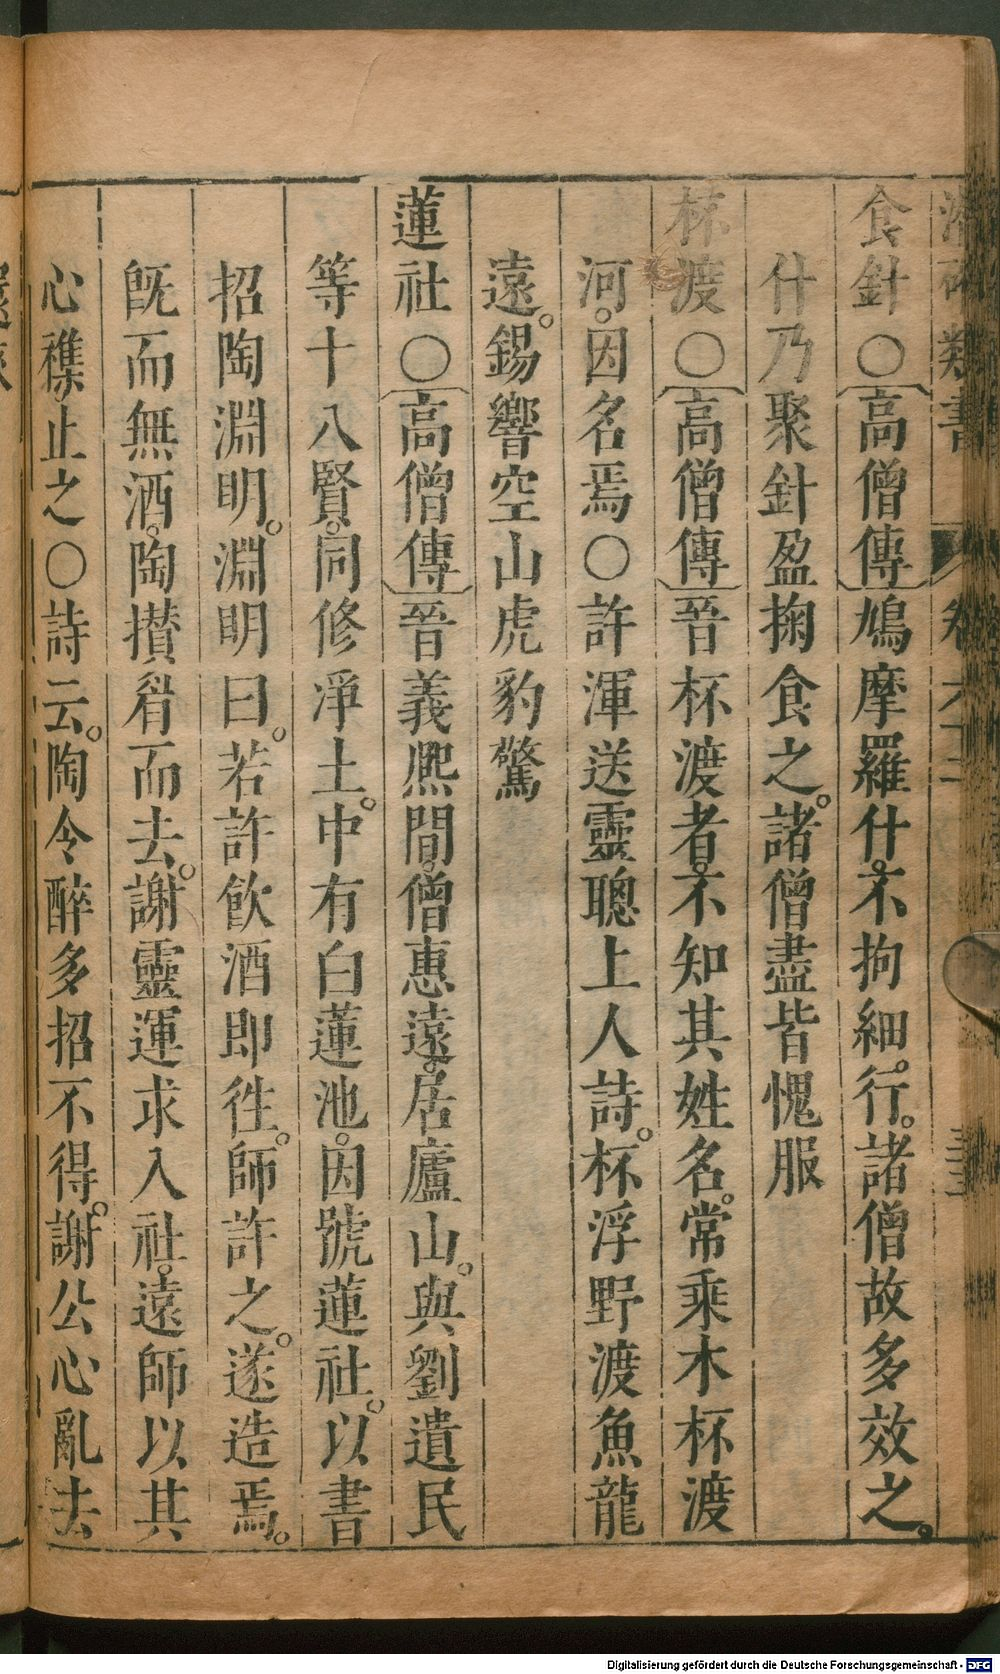 食針○〔高僧傳〕鳩摩羅什。不拘細行。諸僧故多效之。
什乃聚針盈掬食之。諸僧盡皆愧服
杯渡○〔高僧傳〕晉杯渡者。不知其姓名。常乘木杯渡
河。因名焉○許渾送靈聰上人詩。杯浮野渡魚龍
遠。錫響空山虎豹驚
蓮社○〔高僧傳〕晉義熈間。僧惠遠。居廬山。與劉遺民
等十八賢。同修凈土。中有白蓮池。因號蓮社。以書
招陶淵明。淵明曰。若許飲酒即徃。師許之。遂造焉。
旣而無酒。陶攅眉而去。謝靈運求入社。遠師以其
心穕止之○詩云。陶令醉多招不得。謝公心亂去
Digitalisierung gefördert durch die Deutsche Forschungsgemeinschaft - DFG